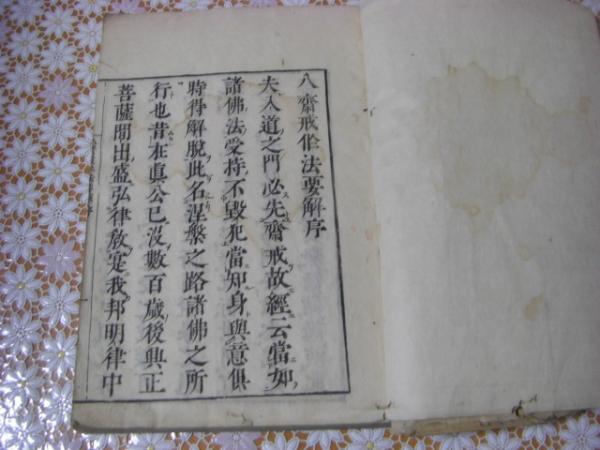 八齋戒作法要解序
夫入道之門必先齋戒故經云當如
諸佛法受持不毀犯當知身與意俱
時得解脫此名涅槃之路諸佛之所
行也昔在眞公已沒數百歲後興正
菩薩間出盛弘律教寔我邦明律中